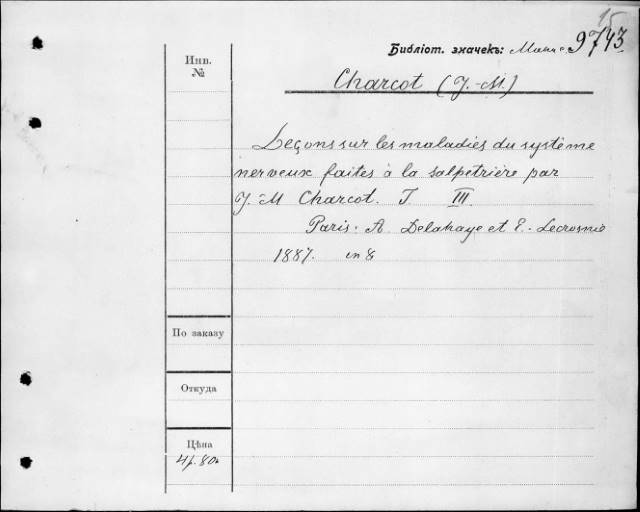 15
Библіот. значекъ: 9743
Инв.
№
Charcot (J.-M.)
Leçons sur les maladies du système
nerveux faites à la salpêtrière par
J.-M Charcot. T. III.
Paris. A. Delahaye et E. Lecrosnie
1887. in 8
По заказу
Откуда
Цѣна
4р. 80к